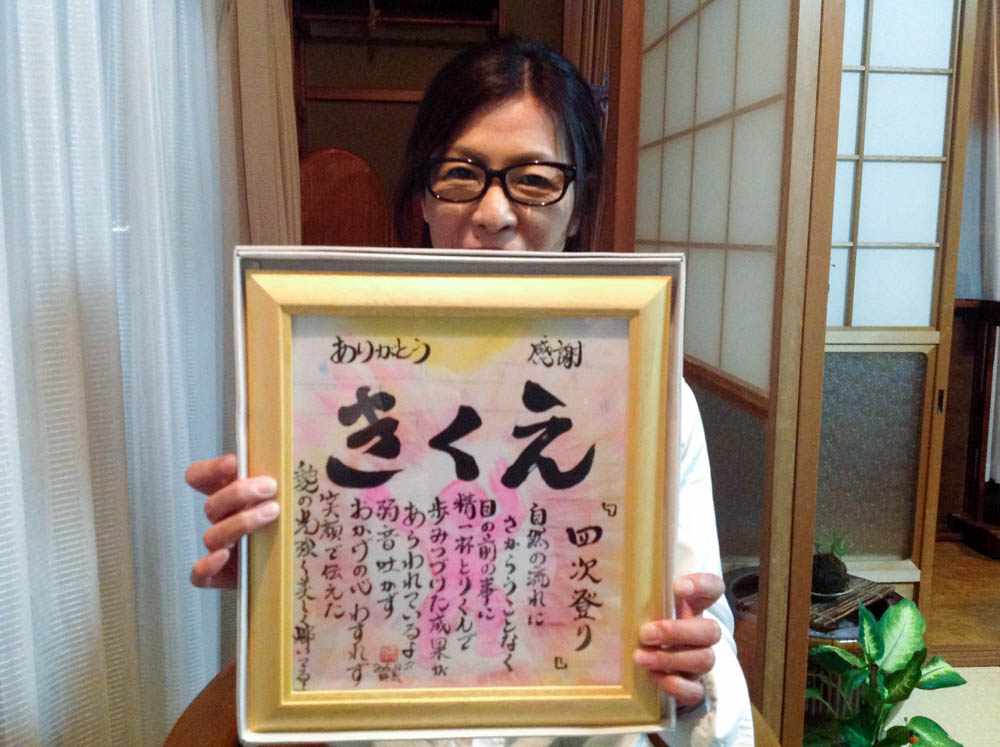 ありがとう 感謝
きくえ
『四次登り』
自然の流れに
さからうことなく
目の前の事に
精一杯とりくんで
歩みつづけた成果が
あらわれているよ
弱音吐かず
おかげの心わすれず
笑顔で伝えた
愛の光強く美しく